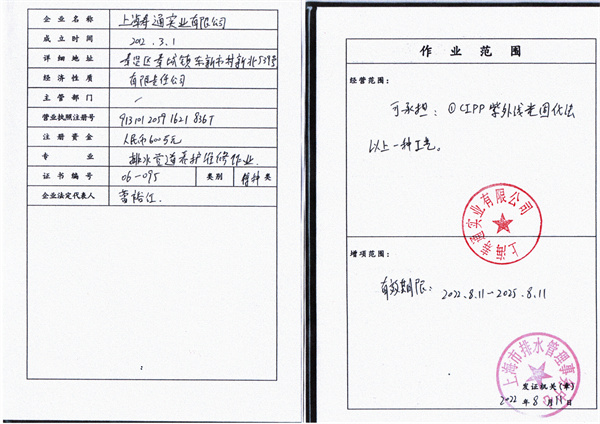 企业名称 上海 通实业有限公司
成立时间 2012.3.1
详细地址 嘉定区 城镇东新市村新北539号
经济性质 有限责任公司
主管部门 /
营业执照注册号 91310120591621836T
注册资金 人民币600万元
专业 排水管道养护维修作业
证书编号 06-095 类别 特种类
企业法定代表人 曹裕江.
2
作业范围
经营范围:
可承担: ①CIPP紫外线光固化法
以上一种工艺。
上海 通实业有限公司
增项范围:
有效期限: 2022.8.11-2025.8.11
上海市排水管理事务中心
发证机关(章)
2022年8月11日